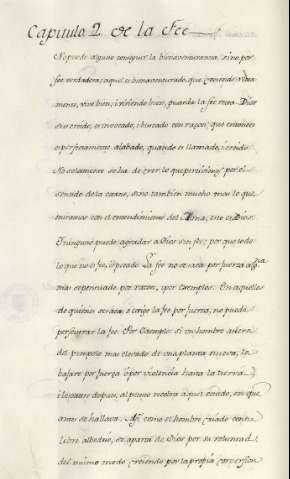 Capitulo 2 de la Fee
No puede alguno conseguir la bienaventuranza, sino por
fee verdadera; aquel es bienaventurado, que creiendo
mente, vive bien; i viviendo bien, guarda la fee recta. Dios
si es creido, es invocado, i buscado con razon; que entonces
es perfectamente alabado, quando es llamado, i creido.
No solamente se ha de creer lo que percivimos por el
sentido de la carne, sino tambien mucho mas lo que
miramos con el entendimiento del Alma, que es Dios.
Ninguno puede agradar a Dios sin fee; por que todo
lo que no es fee, es pecado. La fee no se saca por fuerza
mas es persuadida por razon, i por exemplos. En aquellos
de quienes se saca, o exige la fee por fuerza, no puede
perseverar la fee. Por Exemplo: si un hombre
del mas elevado de una planta nueva, la
bajare por fuerza o por violencia hasta la tierra
i la despues, al punto a aquel estado, en que
antes se hallava. Asi, como el hombre criado con
libre albedrio, se aparta de Dios por su voluntad;
del mismo modo, creiendo por la propia conversion